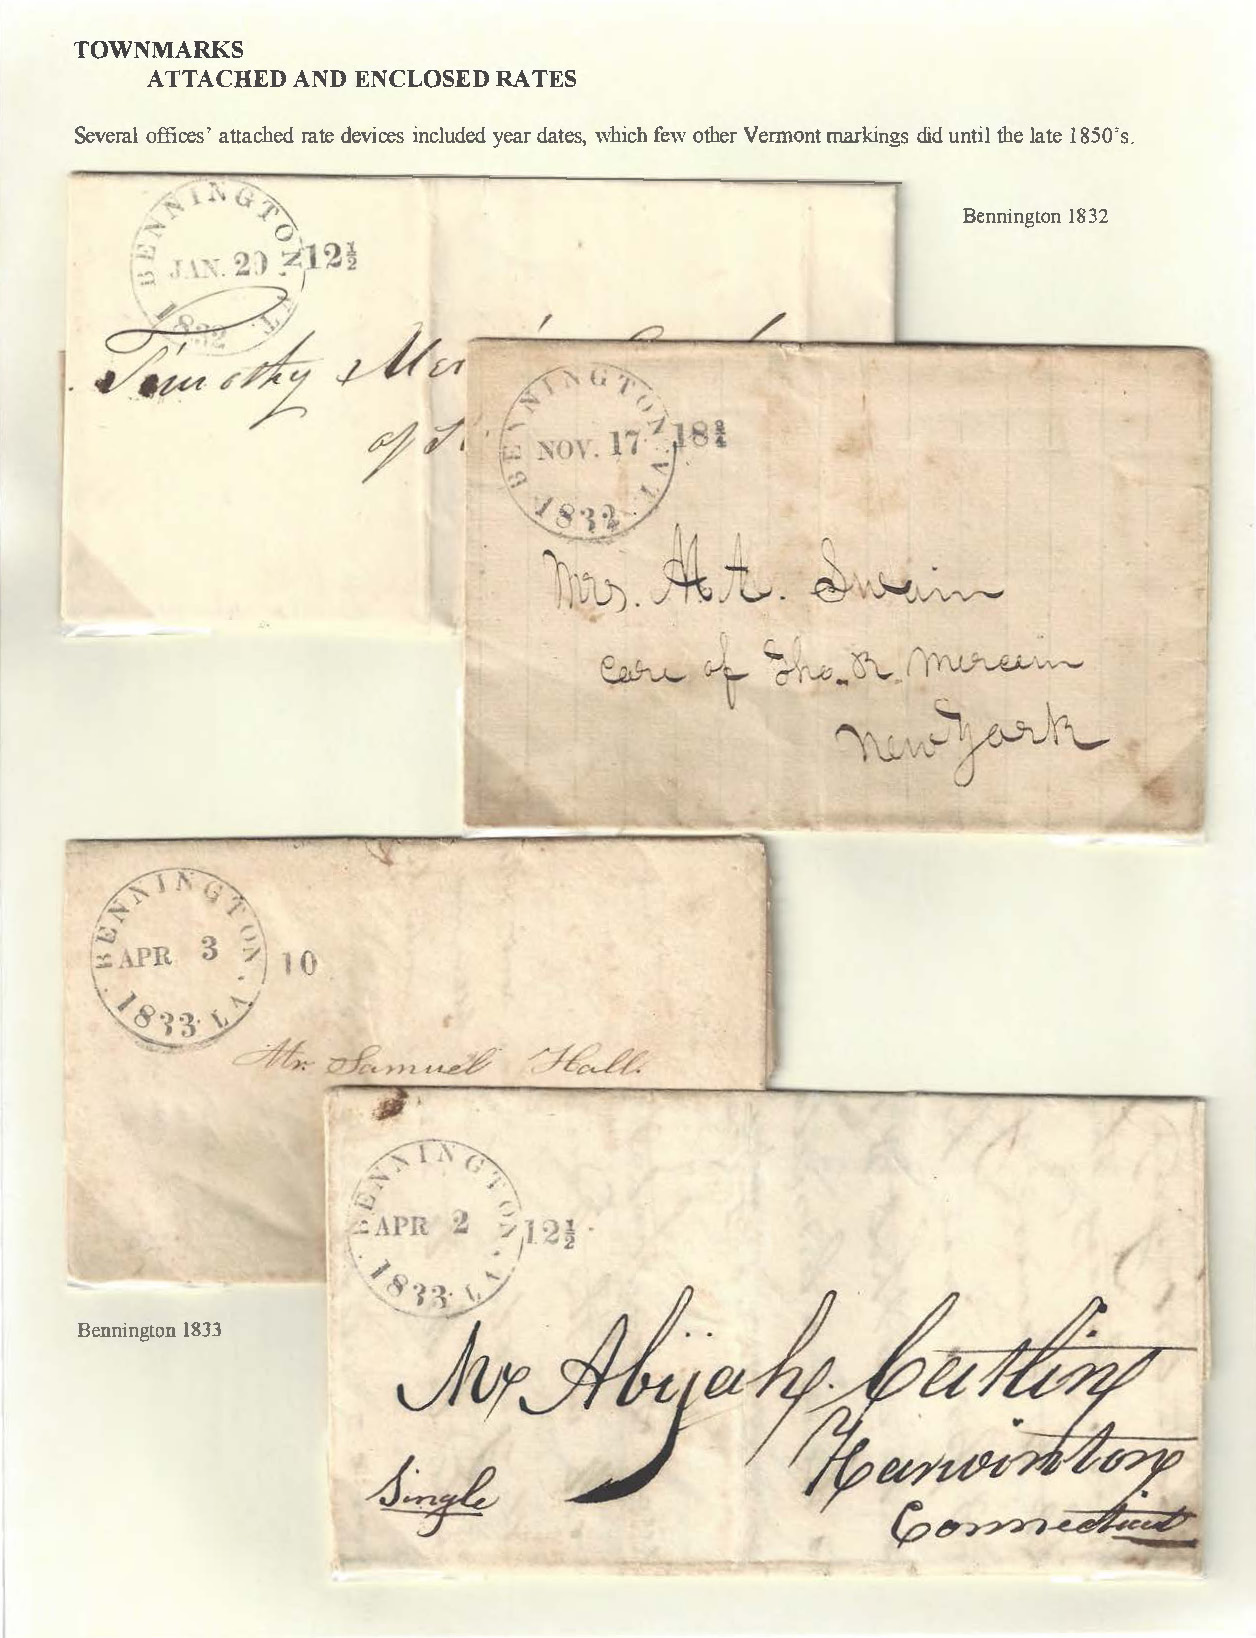 TOWNMARKS
ATTACHED AND ENCLOSED RATES
Several offices' attached rate devices included year dates, which few other Vermont markings did until the late 1850's.
Bennington 1832
BENNINGTON. VT.
JAN. 20 12½
1832
Timothy
of
BENNINGTON. VT.
NOV. 17 18¾
1832
Mrs. A. Swain
care of Tho. R. Mercein
New York
BENNINGTON. VT.
APR 3 10
1833
Mr. Samuel Hall.
BENNINGTON. VT.
APR 2 12½
1833
Mr Abijah Catlin
Harwinton
Connecticut
Single
Bennington 1833